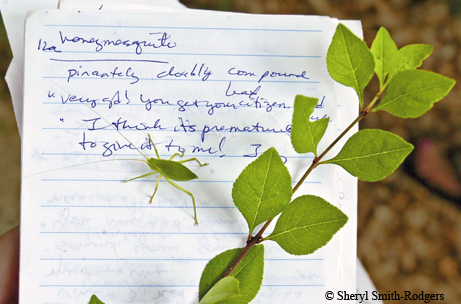 12a honeymesquite
pinnately doubly compound
leaf
"very gd! you get your citizen
" I think it's premature
to give it to me! I
© Sheryl Smith-Rodgers